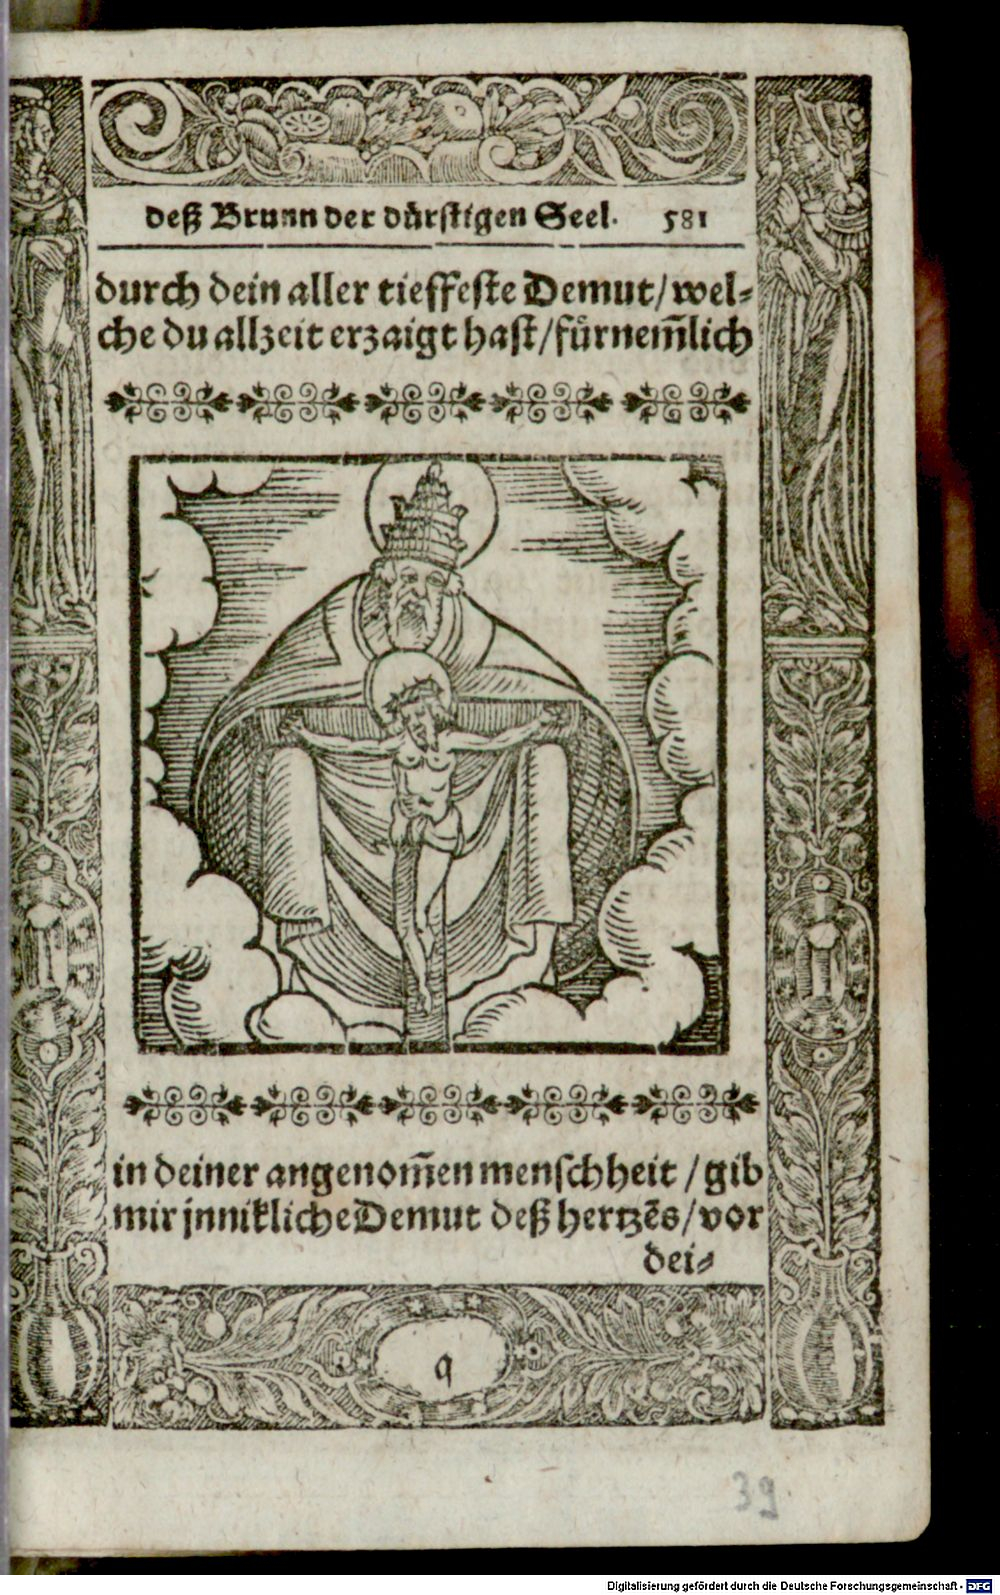 deß Brunn der dürſtigen Seel. 581
durch dein aller tieffeſte Demut/wel⸗
che du allzeit erzaigt haſt/fuͤrnem̃lich
in deiner angenom̃en menſchheit /gib
mir jnnikliche Demut deß hertzẽs/vor
dei⸗
q
39
Digitalisierung gefördert durch die Deutsche Forschungsgemeinschaft - DFG